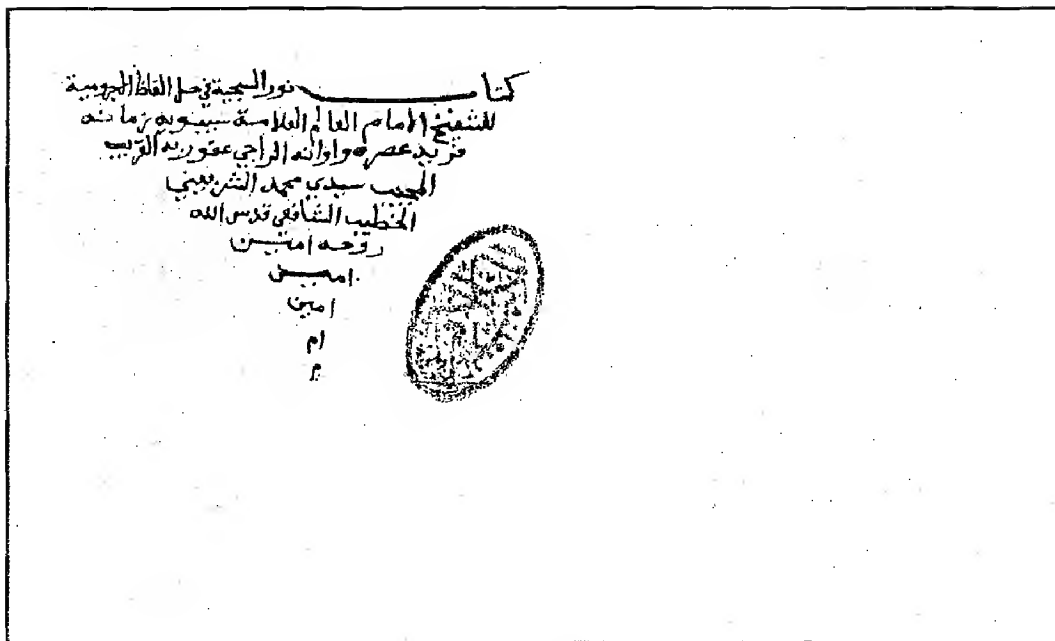 كتاب نور السجية في حل الفاظ الاجرومية
للشيخ الامام العالم العلامة سيبويه زمانه
فريد عصره واوانه الراجي عفو ربه القريب
المجيب سيدي محمد الشربيني
الخطيب الشافعي قدس الله
روحه امين
امين
امين
ام
م